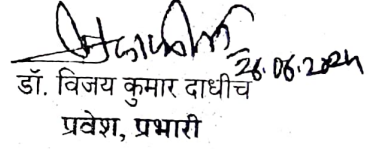 26.06.2024
डॉ. विजय कुमार दाधीच
प्रवेश, प्रभारी